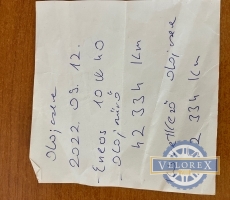 Olajcsere
2022. 09. 12.
- Eneos 10W40
- olajszűrő
42 334 Km
olajcsere
2 334 Km
VELOREX